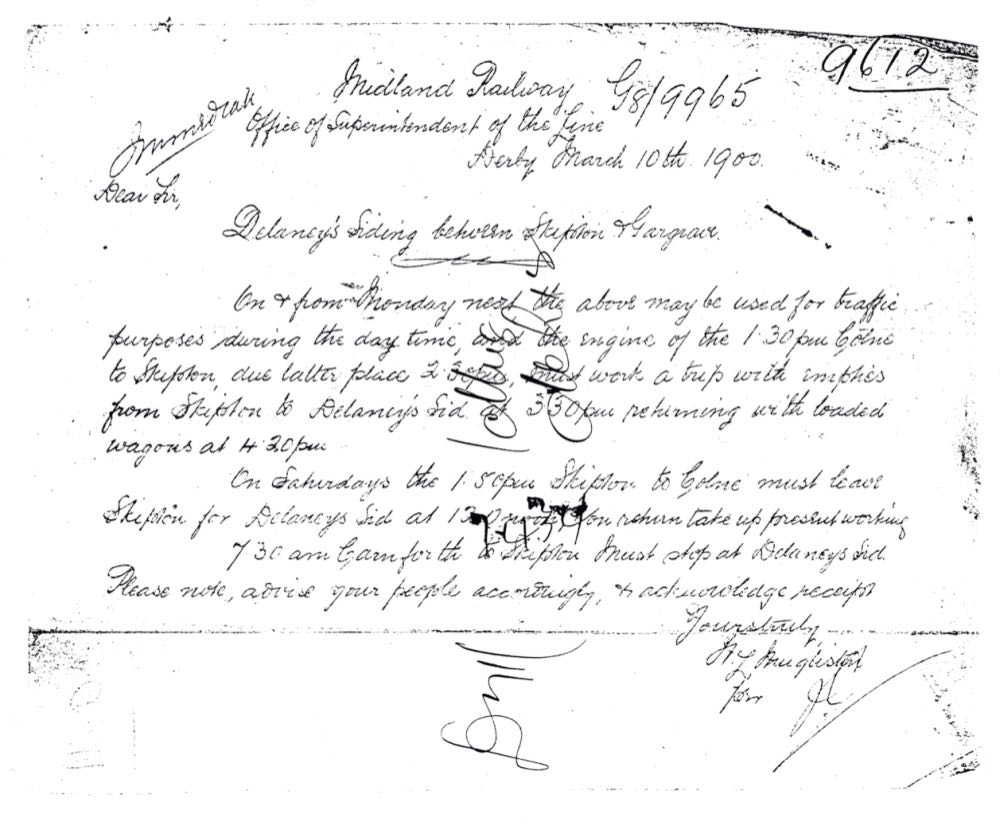 9612
Midland Railway G8/9965
Office of Superintendent of the Line
Derby March 10th 1900.
Dear Sir,
Delaney's Siding between Skipton & Gargrave.
On & from Monday next the above may be used for traffic
purposes during the day time, and the engine of the 1.30pm Colne
to Skipton, due latter place 2.30pm, must work a trip with empties
from Skipton to Delaney's Sid. at 3.30pm returning with loaded
wagons at 4.20pm
On Saturdays the 1.50pm Skipton to Colne must leave
Skipton for Delaneys Sid at 12.0 & on return take up present working
7.30 am Carnforth to Skipton must stop at Delaneys Sid.
Please note, advise your people accordingly, & acknowledge receipt
Yours truly,
W.L. Mugliston
For